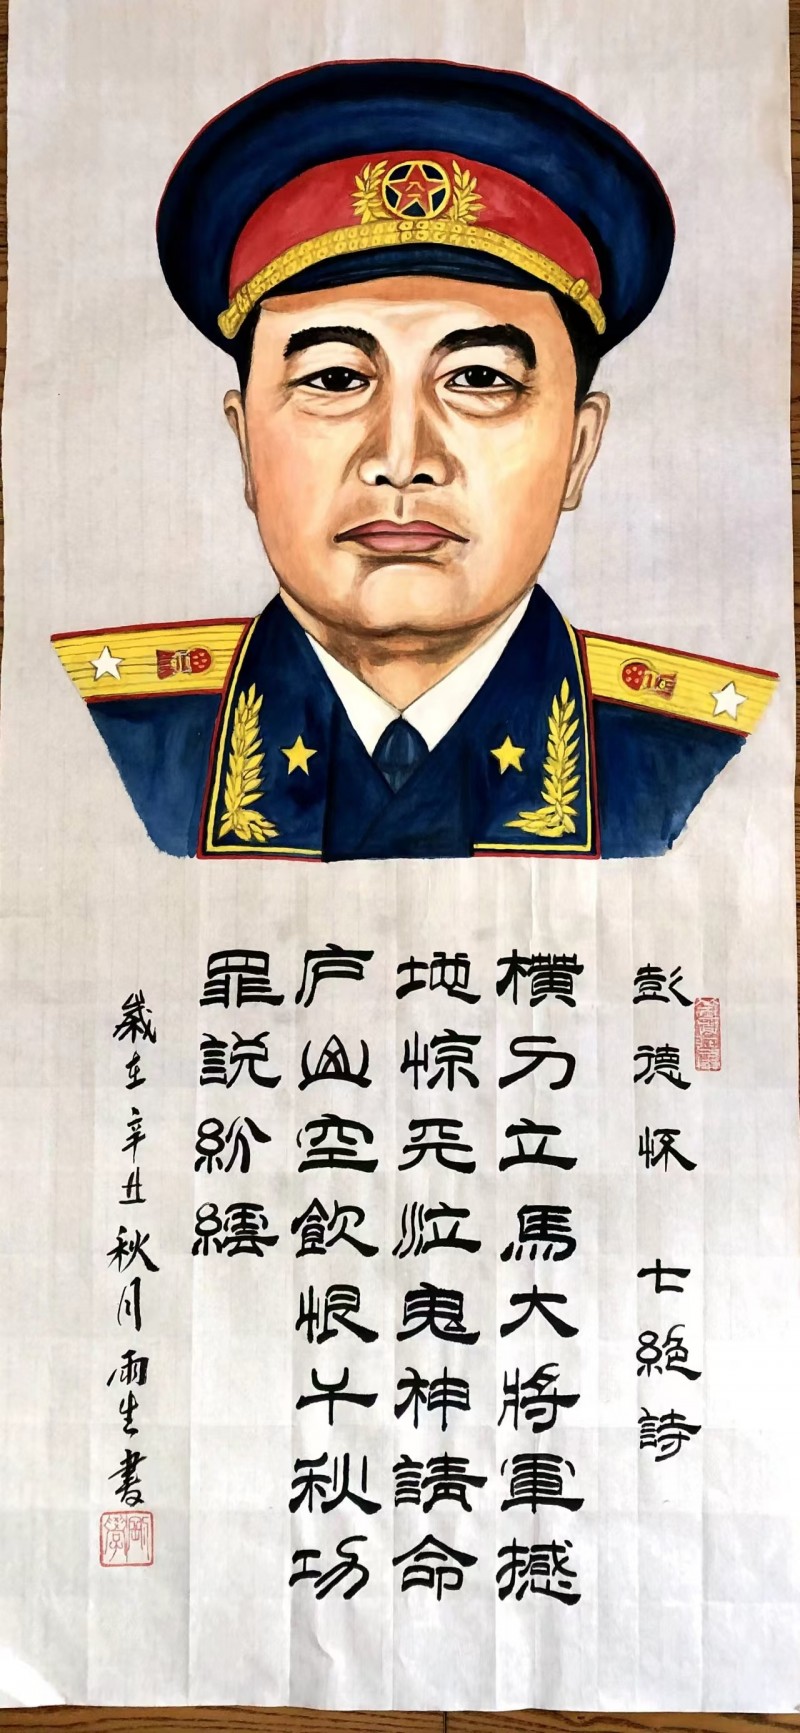 彭德怀 七絕詩
橫刀立馬大將軍撼
地惊天泣鬼神請命
庐山空飲恨千秋功
罪説紛繧
歲在辛丑秋月雨生書
八一